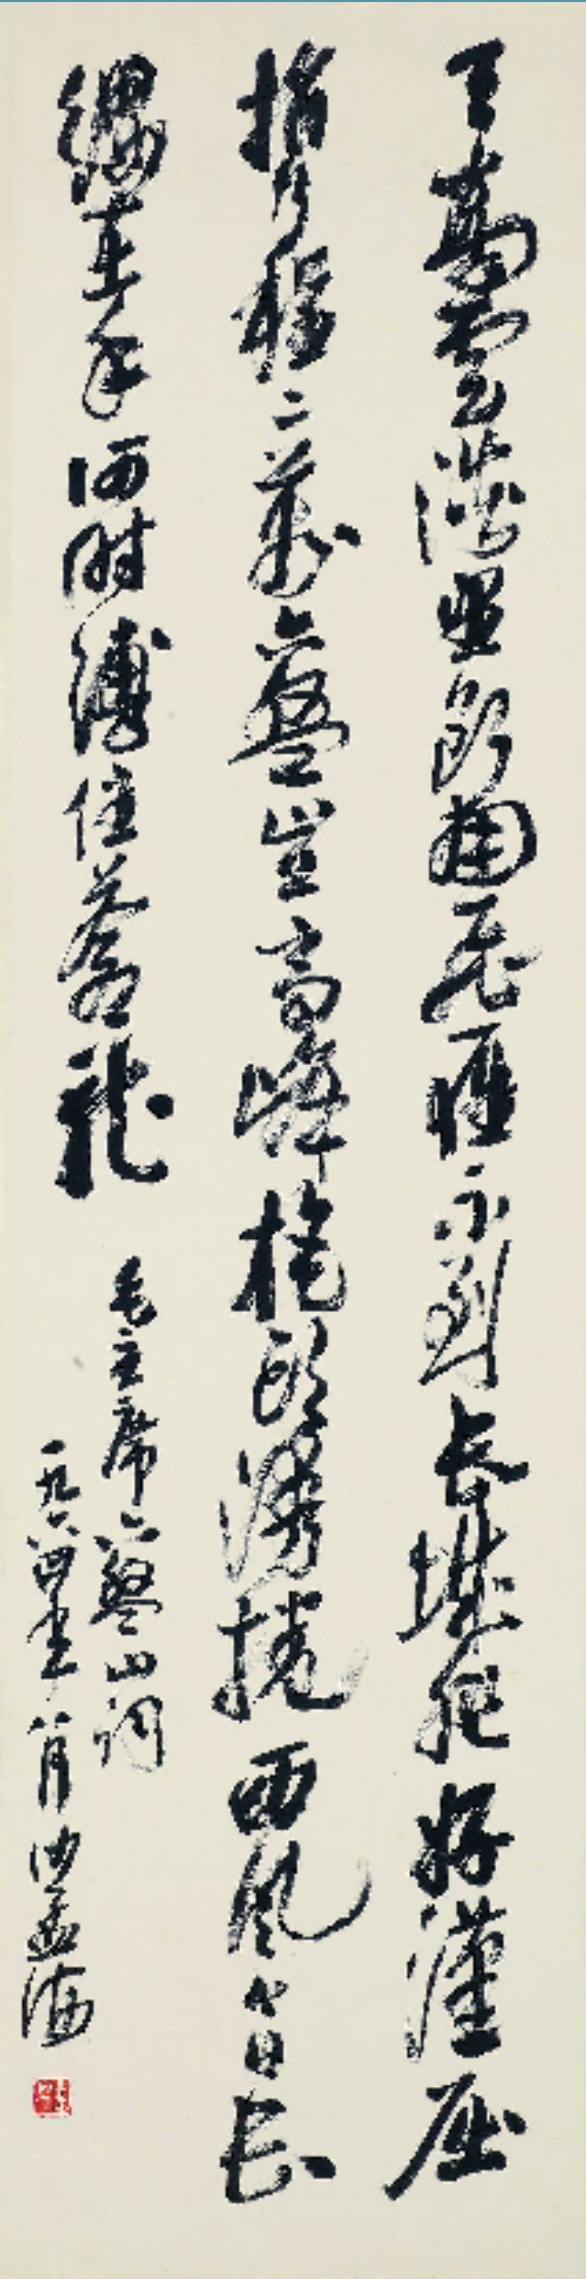 天高雲淡望斷南飛雁不到長城非好漢屈
指行程二萬六盤山上高峰旄頭漫捲西風今日長
纓在手何時縛住蒼龍
毛主席六盤山詞
一九六四年八月沙孟海